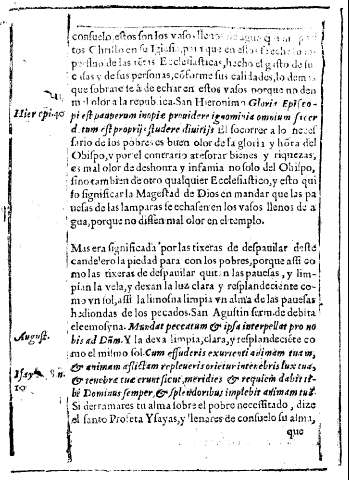 consuelo, estos son los vasos llenos de agua que
tos Christo en su Iglesia, para que en ellos se eche lo su-
perfluo de las rentas Ecclesiasticas, hecho el gasto de su
casas y de sus personas, cõforme sus calidades, lo demas
que sobrare se à de echar en estos vasos porque no den
mal olor a la republica. San Hieronimo Gloria Episco-
Hier epi. 40
pi est pauperum inopiæ prouidere ignominia omnium sacer
dotum est proprijs studere diuitijs El socorrer a lo neces-
sario de los pobres es buen olor de la gloria y hõra del
Obispo, y por el contrario atesorar bienes y riquezas,
es mal olor de deshonra y infamia no solo del Obispo,
sino tambien de otro qualquier Ecclesiastico, y esto qui
so significar la Magestad de Dios en mandar que las pa
uesas de las lamparas se echasen en los vasos llenos de a
gua, porque no diessen mal olor en el templo.
Mas era significada por las tixeras de despauilar deste
candelero la piedad para con los pobres, porque assi co
mo las tixeras de despauilar quitan las pauesas, y lim-
pian la vela, y dexan la luz clara y resplandeciente co-
mo vn sol, assi la limosna limpia vn alma de las pauesas
hediondas de los pecados. San Agustin serm. de debita
August.
eleemosyna. Mundat peccatum & ipsa interpellat pro no
bis ad Dñm. Y la dexa limpia, clara, y resplandeciéte co
mo el mismo sol. Cum effuderis exurienti animam tuam,
Isay. 58. n.
10
& animam aflictam repleueris orietur in tenebris lux tua,
& tenebræ tuæ erunt sicut meridies & requiem dabit ti-
bi Dominus semper, & splendoribus implebit animam tuã.
Si derramares tu alma sobre el pobre necessitado, dize
el santo Profeta Ysayas, y llenares de consuelo su alma,
que